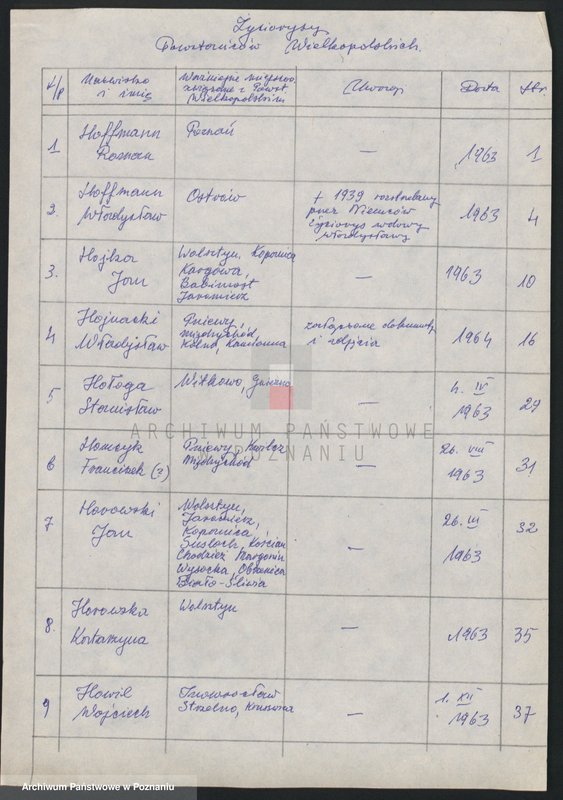 Życiorysy
Powstańców Wielkopolskich.
L/p
Nazwisko
i imię
Ważniejsze miejscow.
związane z Powst
Wielkopolskim
Uwagi
Data
Str
1
Hoffmann
Roman
Poznań
—
1963
1
2.
Hoffmann
Władysław
Ostrów
+ 1939 rozstrzelany
przez Niemców
życiorys wdowy
Władysławy
1963
4
3.
Hojka
Jan
Wolsztyn, Kopanica
Kargowa,
Babimost
Jaromierz
—
1963
10
4
Hojnacki
Władysław
Pniewy,
Międzychód,
Kolno, Kamionna
załączone dokumenty
i zdjęcia
1964
16
5
Hołoga
Stanisław
Witkowo, Gniezno
—
4. IV
1963
29
6
Homczyk
Franciszek (?)
Pniewy, Kwilcz
Międzychód
—
26. VIII
1963
31
7
Horowski
Jan
Wolsztyn,
Jaromierz,
Kopanica,
Kościan
Chodzież Margonin
Wysocka,
Biało-Śliwa
—
26. III
1963
32
8.
Horowska
Katarzyna
Wolsztyn
—
1963
35
9
Howil
Wojciech
Inowrocław
Strzelno, Kruszwica
—
1. XII
1963
37
ARCHIWUM PAŃSTWOWE
W POZNANIU
Archiwum Państwowe w Poznaniu